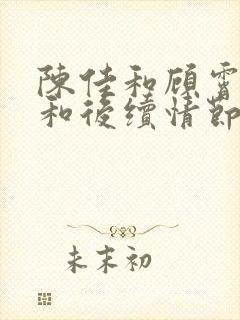 陳佳和顧霄
和後續情節
未末初